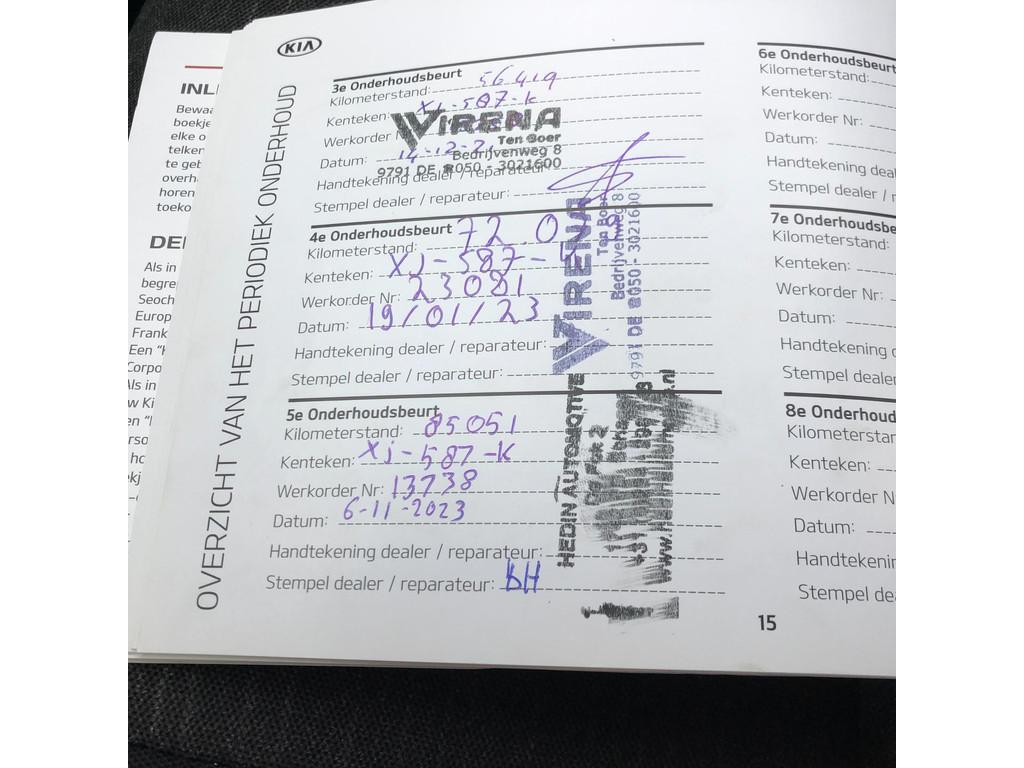 KIA
OVERZICHT VAN HET PERIODIEK ONDERHOUD
3e Onderhoudsbeurt
Kilometerstand: 56419
Kenteken: XJ-587-K
Werkorder N
Datum: 14-12-21
Handtekening dealer / reparateur:
Stempel dealer / reparateur:
VIRENA
Ten Boer
Bedrijvenweg 8
9791 DE ☎050 - 3021600
4e Onderhoudsbeurt
Kilometerstand: 72.0
Kenteken: XJ-587-K
Werkorder Nr: 23081
Datum: 19/01/23
Handtekening dealer / reparateur:
Stempel dealer / reparateur:
VIRENA
Ten Boer
Bedrijvenweg 8
9791 DE ☎050 - 3021600
5e Onderhoudsbeurt
Kilometerstand: 85051
Kenteken: XJ-587-K
Werkorder Nr: 13738
Datum: 6-11-2023
Handtekening dealer / reparateur:
Stempel dealer / reparateur: bH
HEDIN AUTOMOTIVE
6e Onderhoudsbeurt
Kilometerstand:
Kenteken:
Werkorder Nr:
Datum:
Handtekening deal
Stempel dealer / r
7e Onderhoudsbe
Kilometerstand:
Kenteken:
Werkorder Nr:
Datum:
Handtekening d
Stempel dealer
8e Onderhoud
Kilometerstar
Kenteken:
Werkorder N
Datum:
Handtekenir
Stempel de
15
INL
Bewaa
boekje
elke o
telken
te get
overh
horen
toeko
DE
Als in
begre
Seoch
Europ
Frank
Een "H
Corpo
Als in
w Ki
en "I